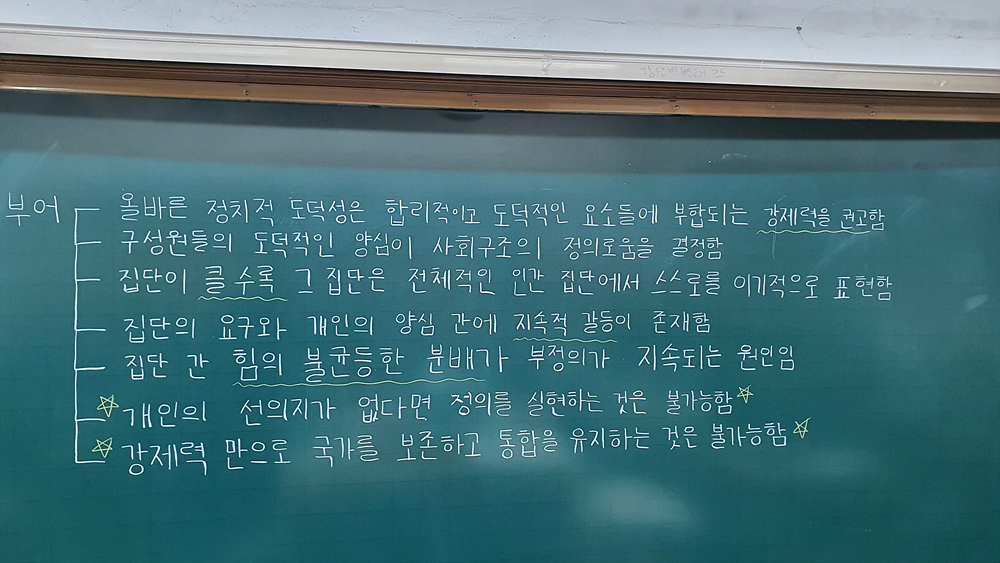 부어
올바른 정치적 도덕성은 합리적이고 도덕적인 요소들에 부합되는 강제력을 권고함
구성원들의 도덕적인 양심이 사회구조의 정의로움을 결정함
집단이 클 수록 그 집단은 전체적인 인간 집단에서 스스로를 이기적으로 표현함
집단의 요구와 개인의 양심 간에 지속적 갈등이 존재함
집단 간 힘의 불균등한 분배가 부정의가 지속되는 원인임
☆개인의 선의지가 없다면 정의를 실현하는 것은 불가능함☆
☆강제력 만으로 국가를 보존하고 통합을 유지하는 것은 불가능함☆